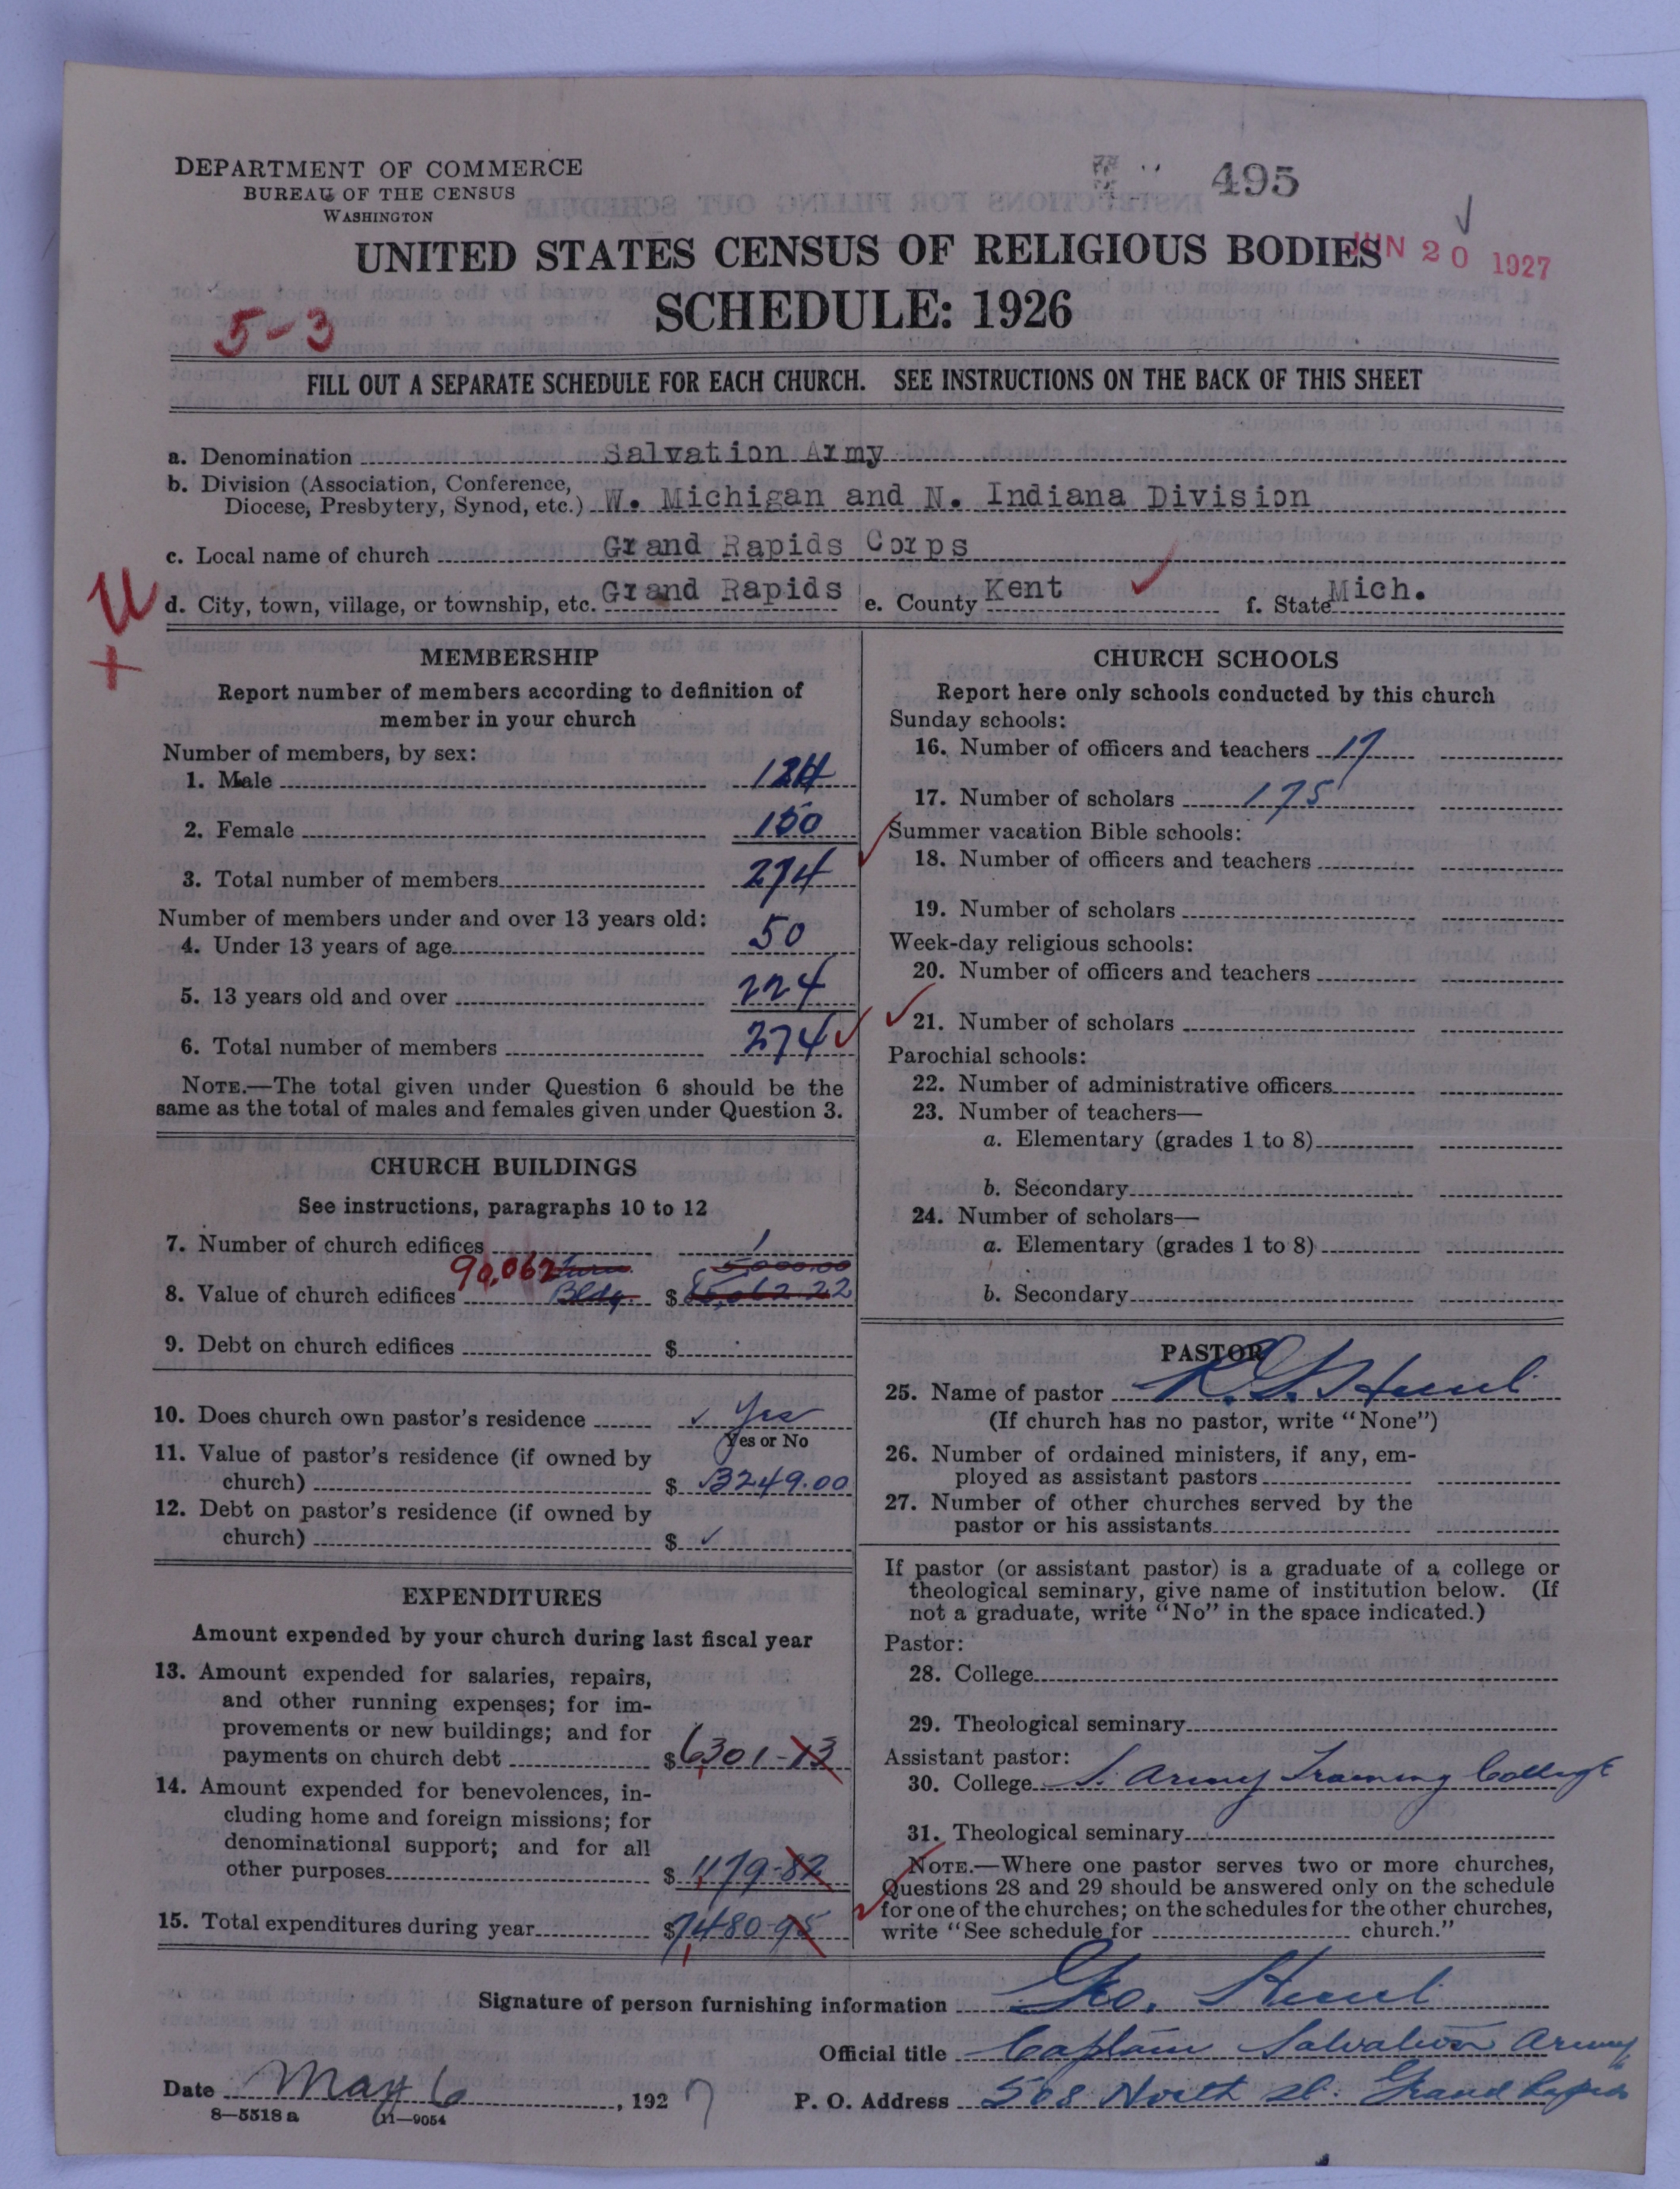 DEPARTMENT OF COMMERCE
BUREAU OF THE CENSUS
WASHINGTON
495
JUN 20 1927
UNITED STATES CENSUS OF RELIGIOUS BODIES
SCHEDULE: 1926
5-3
FILL OUT A SEPARATE SCHEDULE FOR EACH CHURCH. SEE INSTRUCTIONS ON THE BACK OF THIS SHEET
a. Denomination Salvation Army
b. Division (Association, Conference,
Diocese, Presbytery, Synod, etc.) W. Michigan and N. Indiana Division
c. Local name of church Grand Rapids Corps
d. City, town, village, or township, etc. Grand Rapids e. County Kent f. State Mich.
MEMBERSHIP
Report number of members according to definition of
member in your church
Number of members, by sex:
1. Male 124
2. Female 150
3. Total number of members 274
Number of members under and over 13 years old:
4. Under 13 years of age 50
5. 13 years old and over 224
6. Total number of members 274
NOTE.—The total given under Question 6 should be the
same as the total of males and females given under Question 3.
CHURCH BUILDINGS
See instructions, paragraphs 10 to 12
7. Number of church edifices 1
90,062 5,000.00
8. Value of church edifices Bldg. $
9. Debt on church edifices $
10. Does church own pastor's residence Yes
Yes or No
11. Value of pastor's residence (if owned by
church) $ 3249.00
12. Debt on pastor's residence (if owned by
church) $
EXPENDITURES
Amount expended by your church during last fiscal year
13. Amount expended for salaries, repairs,
and other running expenses; for im-
provements or new buildings; and for
payments on church debt $ 6301-13
14. Amount expended for benevolences, in-
cluding home and foreign missions; for
denominational support; and for all
other purposes $ 1179-82
15. Total expenditures during year $ 7480-95
CHURCH SCHOOLS
Report here only schools conducted by this church
Sunday schools:
16. Number of officers and teachers 17
17. Number of scholars 175
Summer vacation Bible schools:
18. Number of officers and teachers
19. Number of scholars
Week-day religious schools:
20. Number of officers and teachers
21. Number of scholars
Parochial schools:
22. Number of administrative officers
23. Number of teachers—
a. Elementary (grades 1 to 8)
b. Secondary
24. Number of scholars—
a. Elementary (grades 1 to 8)
b. Secondary
PASTOR
25. Name of pastor
(If church has no pastor, write "None")
26. Number of ordained ministers, if any, em-
ployed as assistant pastors
27. Number of other churches served by the
pastor or his assistants
If pastor (or assistant pastor) is a graduate of a college or
theological seminary, give name of institution below. (If
not a graduate, write "No" in the space indicated.)
Pastor:
28. College
29. Theological seminary
Assistant pastor:
30. College S. Army Training College
31. Theological seminary
NOTE.—Where one pastor serves two or more churches,
Questions 28 and 29 should be answered only on the schedule
for one of the churches; on the schedules for the other churches,
write "See schedule for church."
Signature of person furnishing information Geo.
Official title Captain Salvation Army
Date May 6, 1927 P. O. Address 508 North St. Grand Rapids
8—5518 a 11—9054